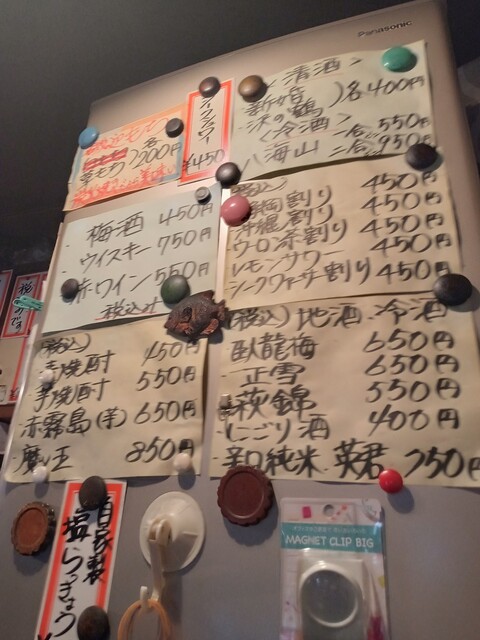 Panasonic
<清酒>
各400円
<冷酒> 一合 550円
八海山 二合 950円
¥450
200円
梅酒 450円
ウイスキー 750円
赤ワイン 550円
税込み
(税込)
静岡割り 450円
沖縄割り 450円
ウーロン茶割り 450円
レモンサワー 450円
シークワーサー割り 450円
(税込)
450円
芋焼酎 550円
赤霧島(芋) 650円
魔王 850円
(税込) 地酒 冷酒
臥龍梅 650円
正雪 650円
萩錦 550円
にごり酒 400円
辛口純米 英君 750円
自家製
塩らっきょう
MAGNET CLIP BIG